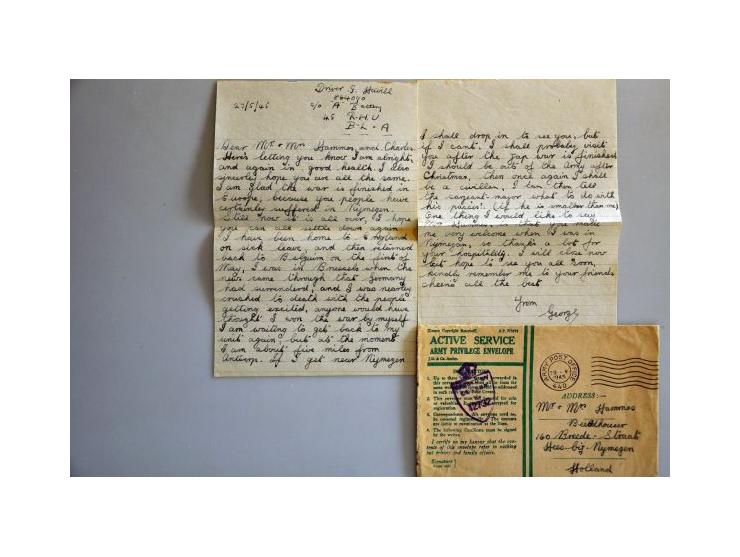 Driver G.
27/5/45 C/O A Battery
R.H.U
B-L-A
Dear Mr & Mrs Hammes, and Charles.
Here's letting you know I am alright,
and again in good health. I also
sincerly hope you are all the same.
I am glad the war is finished in
Europe, because you people have
certainly suffered in Nymegen
Still now it is all over, I hope
you can all settle down again
I have been home to England
on sick leave, and then returned
back to Belguim on the first of
May, I was in Brussels when the
news came through that Germany
had surrenderd, and I was nearly
crushed to death with the people
getting excited, anyone would have
thought I won the war by myself
I am waiting to get back to my
unit again, but at the moment
I am about five miles from
Antwerp. if I get near Nymegen
I shall drop in to see you, but
if I cant. I shall probaly visit
you after the Jap war is finished
I should be out of the army after
Christmas, then once again I shall
be a civilian, I can then tell
the sargeant-major what to do with
his passes! (if he is smaller than me)
One thing I would like to say
Mrs Hammes, is that you made
me very welcome when I was in
Nymegan, so thanks a lot for
your hospitality. I will close now
but hope to see you all soon,
kindly remember me to your friends
cheerio all the best
From
George
ACTIVE SERVICE
ARMY PRIVILEGE ENVELOPE
ARMY POST OFFICE
1945
ADDRESS:—
Mr & Mrs Hammes
160 Breede-Straat
Hees-big-Nymegen
Holland
I certify on my honour that the con-
tents of this envelope refer to nothing
but private and family affairs.
Signature